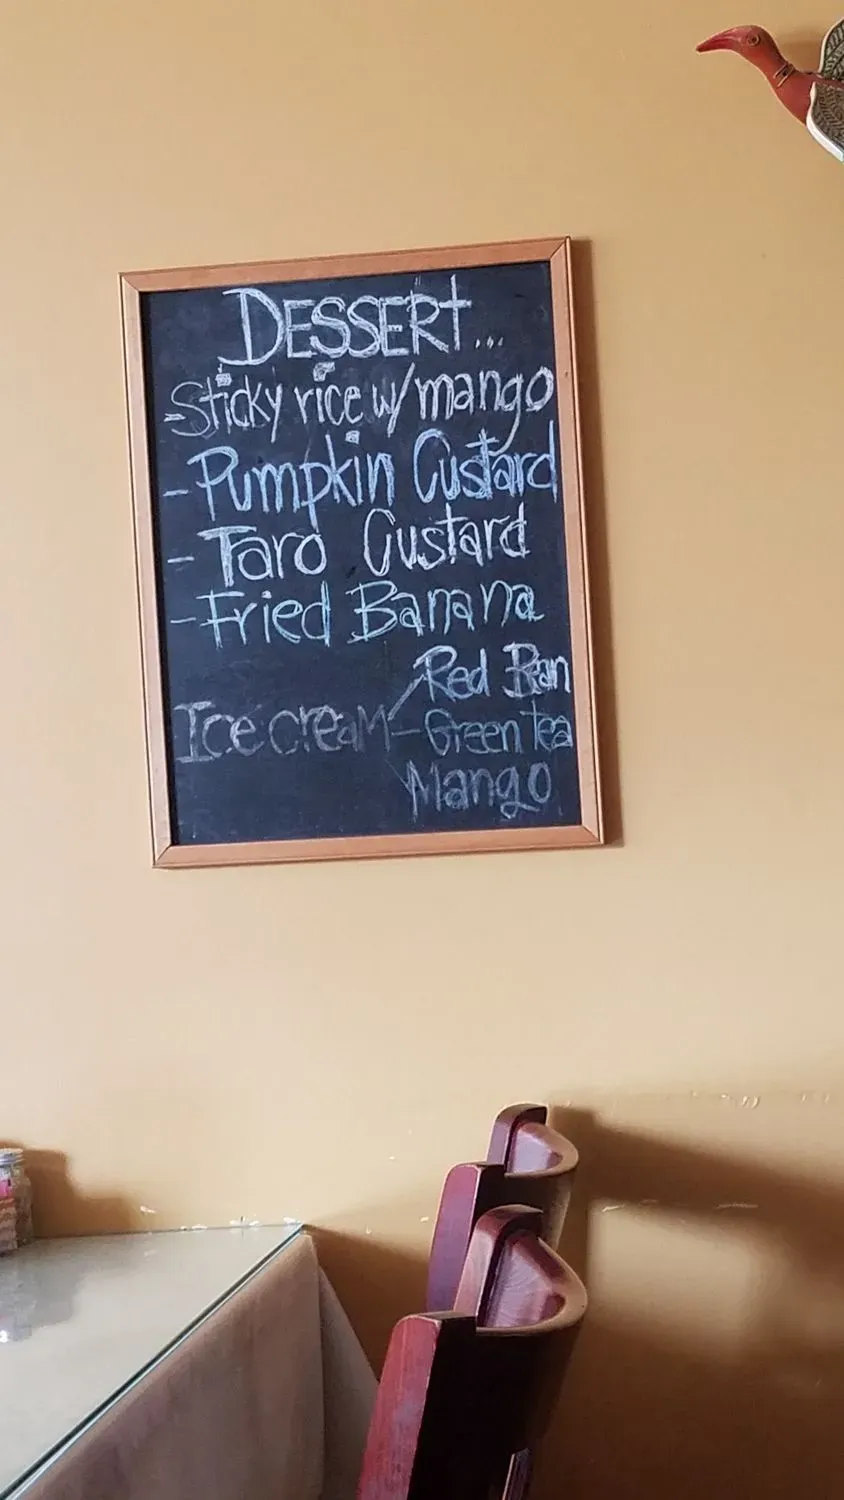 DESSERT...
- Sticky rice w/ mango
- Pumpkin Custard
- Taro Custard
- Fried Banana
Red Bean
Ice cream - Green Tea
Mango